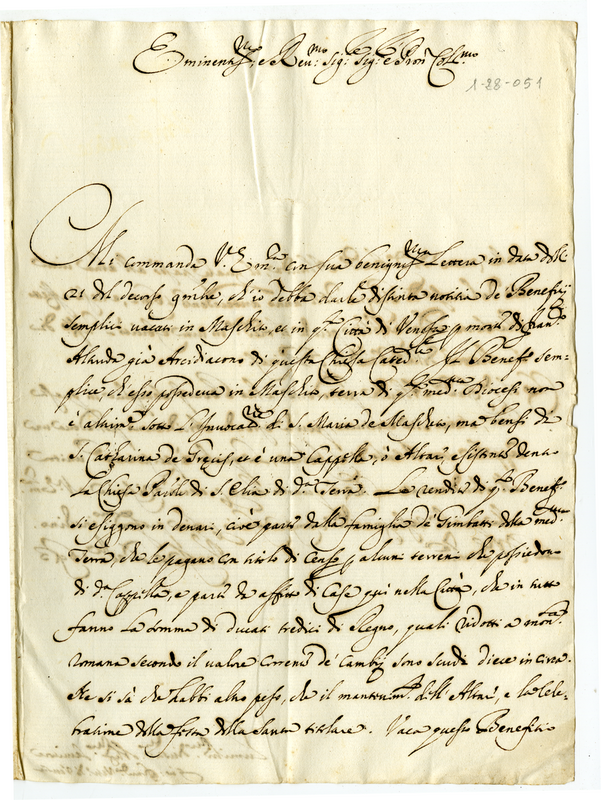 Eminent.mo e Reu.mo Sig.re Sig.re e Pron Col.mo
1-28-051
Mi commanda V.E.m.za con sua benigniss.ma Lettera in data delli
21 del decorso, ch'io debba darle distinta notitia de Beneficij
semplici vacati in Maschito, et in q.ta Città di Venosa p morte di
già Arcidiacono di questa Chiesa Cated.le Il Benef.o sem=
plice, ch'esso possedeva in Maschito, terra di q.ta med.ma Diocesi non
è altrim.te sotto l'Invocat.ne di S. Maria de Maschito, ma bensi di
S. Catharina de Grecis, et è una Cappella, ò Altare esistente dentro
la Chiesa Paroli di S. Elia di d.a Terra. Le rendite di q.to Benef.o
si esiggono in denari, cioè parte dalla famiglia de Gimbatti della med.ma
Terra, che le pagano con titolo di Censo p alcuni terreni che possiedono
di d.a Cappella, e parte da affitto di Case qui nella Città, che in tutto
fanno la somma di ducati tredici di Regno, quali ridotti a mon.ta
romana secondo il valore corrente de Cambij sono scudi diece in circa.
Ne si sà che habbi altro peso, che il mantenim.to dell'Altare, e la Cele=
bratione della festa della Santa titolare. Vaca questo Beneficio